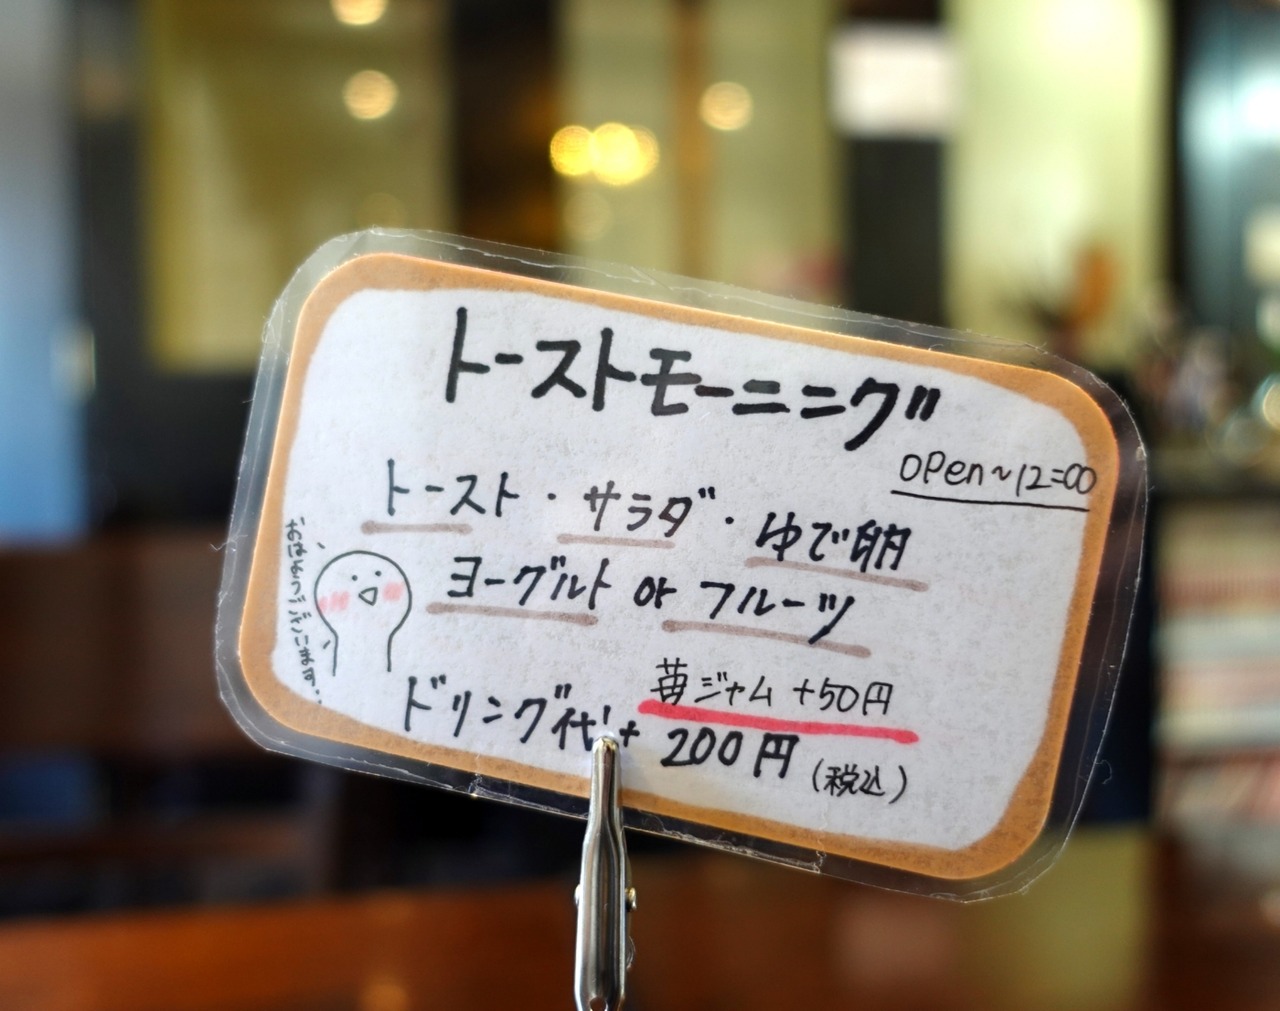 トーストモーニング
OPen~12:00
トースト・サラダ・ゆで卵
ヨーグルト or フルーツ
苺ジャム +50円
ドリング代+ 200円(税込)